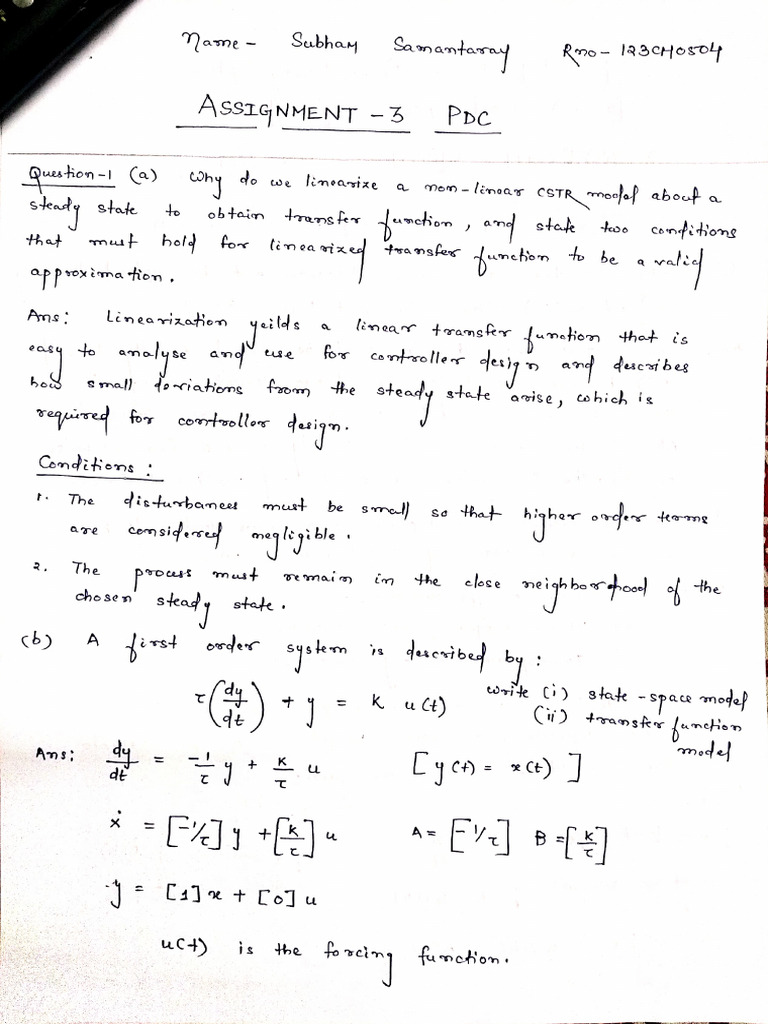 Name - Subham Samantaray Rno - 123CH0504
ASSIGNMENT - 3 PDC
Question-1 (a) Why do we linearize a non-linear CSTR model about a
steady state to obtain transfer function, and state two conditions
that must hold for linearized transfer function to be a valid
approximation.
Ans: Linearization yeilds a linear transfer function that is
easy to analyse and use for controller design and describes
how small deviations from the steady state arise, which is
required for controller design.
Conditions :
1. The disturbances must be small so that higher order terms
are considered negligible.
2. The process must remain in the close neighborhood of the
chosen steady state.
(b) A first order system is described by :
τ(dy/dt) + y = K u(t) write (i) state-space model
(ii) transfer function
model
Ans: dy/dt = -1/τ y + K/τ u [y(t) = x(t)]
ẋ = [-1/τ] y + [K/τ] u A = [-1/τ] B = [K/τ]
y = [1] x + [0] u
u(t) is the forcing function.